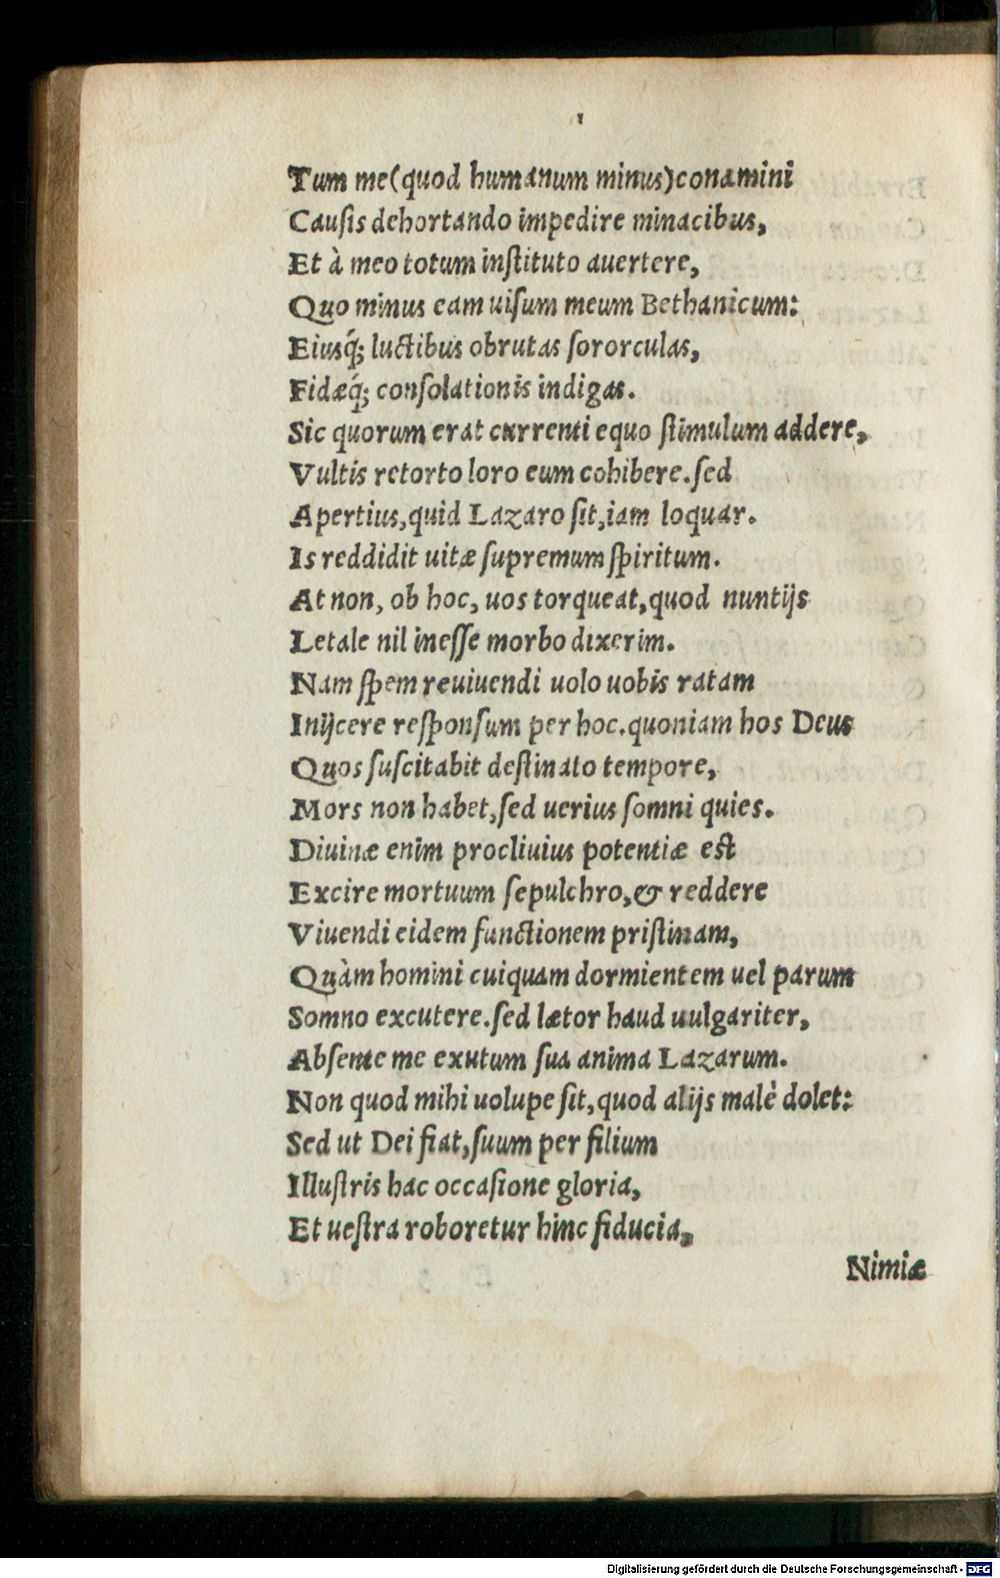 Tum me(quod humanum minus)conamini
Cauſis dehortando impedire minacibus,
Et à meo totum inſtituto auertere,
Quo minus eam uiſum meum Bethanicum:
Eiusq́; luctibus obrutas ſororculas,
Fidæq́; conſolationis indigas.
Sic quorum erat currenti equo ſtimulum addere,
Vultis retorto loro eum cohibere.ſed
Apertius,quid Lazaro ſit,iam loquar.
Is reddidit uitæ ſupremum ſpiritum.
At non, ob hoc, uos torqueat,quod nuntijs
Letale nil ineſſe morbo dixerim.
Nam ſpem reuiuendi uolo uobis ratam
Inijcere reſponſum per hoc.quoniam hos Deus
Quos ſuſcitabit deſtinato tempore,
Mors non habet,ſed uerius ſomni quies.
Diuinæ enim procliuius potentiæ est
Excire mortuum ſepulchro,& reddere
Viuendi eidem functionem priſtinam,
Quàm homini cuiquam dormientem uel parum
Somno excutere.ſed lætor haud uulgariter,
Abſente me exutum ſua anima Lazarum.
Non quod mihi uolupe ſit,quod alijs malè dolet:
Sed ut Dei fiat,ſuum per filium
Illuſtris hac occaſione gloria,
Et ueſtra roboretur hinc fiducia,
Nimiæ
Digitalisierung gefördert durch die Deutsche Forschungsgemeinschaft - DFG